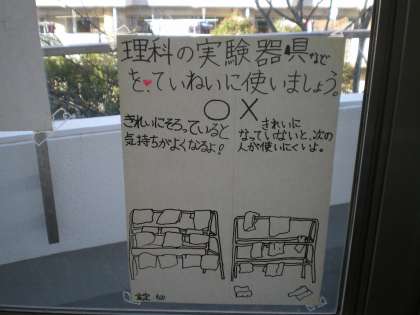 理科の実験器具など
を♥ていねいに使いましょう。
○ ×
きれいにそろっていると
気持ちがよくなるよ!
きれいに
なっていないと、次の
人が使いにくいよ。